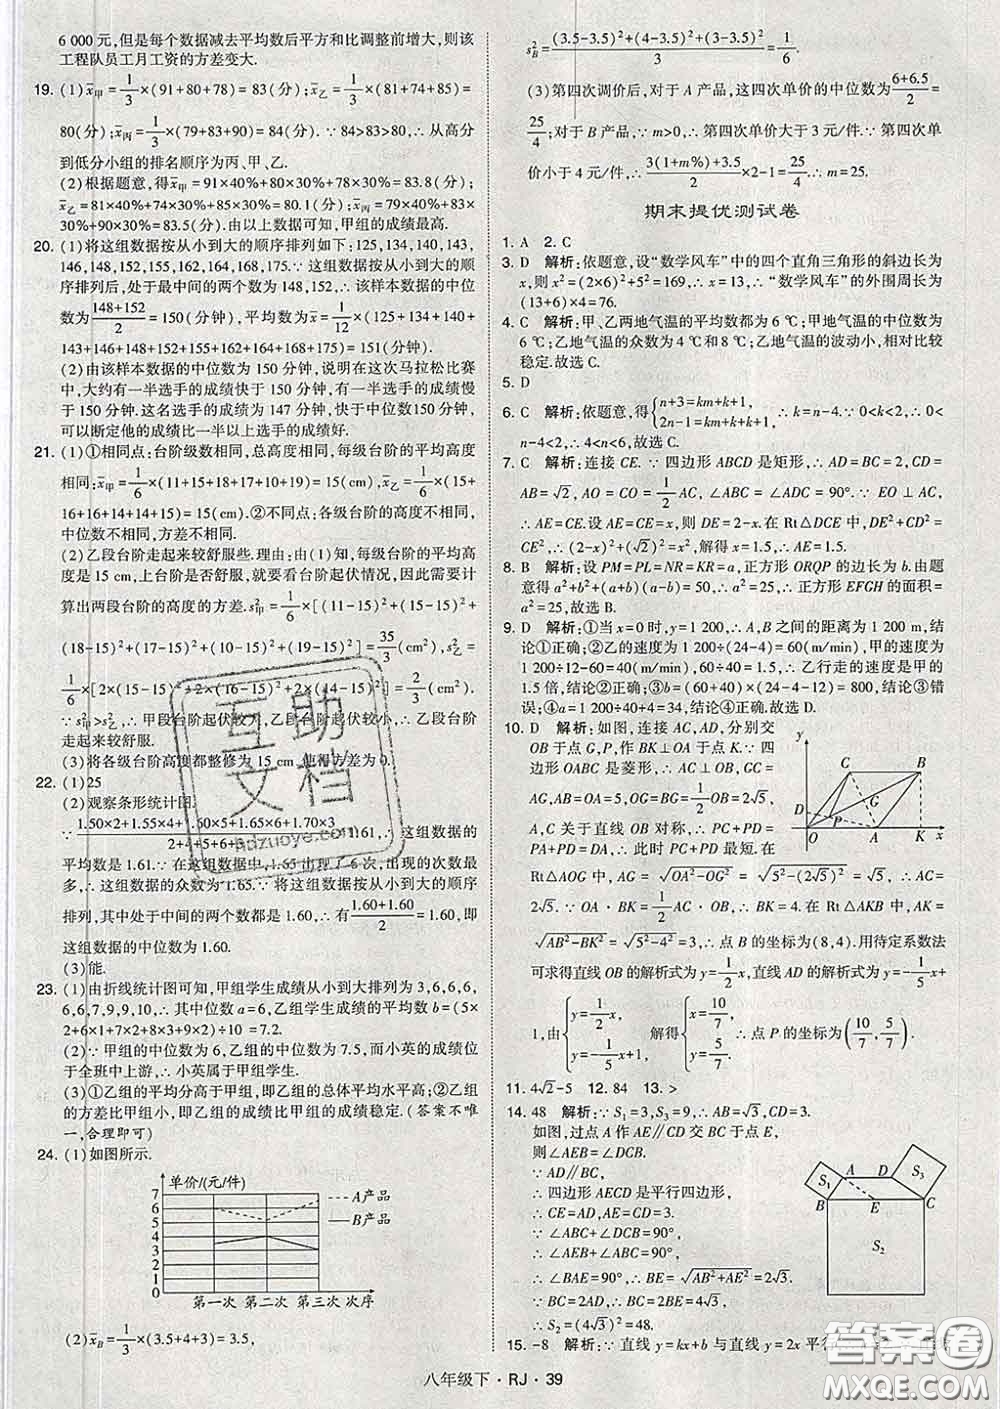 6 000 元,但是每个数据减去平均数后平方和比调整前增大,则该
工程队员工月工资的方差变大.
19. (1) x̄甲=1/3×(91+80+78)=83(分);x̄乙=1/3×(81+74+85)=
80(分);x̄丙=1/3×(79+83+90)=84(分).∵84>83>80,∴从高分
到低分小组的排名顺序为丙、甲、乙.
(2)根据题意,得x̄甲=91×40%+80×30%+78×30%=83.8(分),
x̄乙=81×40%+74×30%+85×30%=80.1(分),x̄丙=79×40%+83×
30%+90×30%=83.5(分).由以上数据可知,甲组的成绩最高.
20. (1)将这组数据按从小到大的顺序排列如下:125,134,140,143,
146,148,152,155,162,165,168,175.∵这组数据按从小到大的顺
序排列后,处于最中间的两个数为148,152,∴该样本数据的中位
数为(148+152)/2=150(分钟),平均数为x̄=1/12×(125+134+140+
143+146+148+152+155+162+165+168+175)=151(分钟).
(2)由该样本数据的中位数为150分钟,说明在这次马拉松比赛
中,大约有一半选手的成绩快于150分钟,有一半选手的成绩慢
于150分钟.这名选手的成绩为147分钟,快于中位数150分钟,
可以断定他的成绩比一半以上选手的成绩好.
21. (1)①相同点:台阶级数相同,总高度相同,每级台阶的平均高度
相同:x̄甲=1/6×(11+15+18+17+10+19)=15(cm),x̄乙=1/6×(15+
16+16+14+14+15)=15(cm).②不同点:各级台阶的高度不相同,
中位数不相同,方差不相同.
(2)乙段台阶走起来较舒服些.理由:由(1)知,每级台阶的平均高
度是15 cm,上台阶是否舒服,就要看台阶起伏情况,因此需要计
算出两段台阶的高度的方差.s²甲=1/6×[(11-15)²+(15-15)²+
(18-15)²+(17-15)²+(10-15)²+(19-15)²]=35/3(cm²),s²乙=
1/6×[2×(15-15)²+2×(16-15)²+2×(14-15)²]=2/3(cm²).
∵s²甲>s²乙,∴甲段台阶起伏较大,乙段台阶起伏较小,∴乙段台
阶走起来较舒服.
(3)将各级台阶高度都整修为15 cm,使得方差为0.
22. (1)25
(2)观察条形统计图.
∵(1.50×2+1.55×4+1.60×5+1.65×6+1.70×3)/(2+4+5+6+3)=1.61,∴这组数据的
平均数是1.61.∵在这组数据中,1.65出现了6次,出现的次数最
多,∴这组数据的众数为1.65.∵将这组数据按从小到大的顺序
排列,其中处于中间的两个数都是1.60,∴有(1.60+1.60)/2=1.60,即
这组数据的中位数为1.60.
(3)能.
23. (1)由折线统计图可知,甲组学生成绩从小到大排列为3,6,6,6,
6,6,7,9,9,10,∴其中位数a=6,乙组学生成绩的平均数b=(5×
2+6×1+7×2+8×3+9×2)÷10=7.2.
(2)∵甲组的中位数为6,乙组的中位数为7.5,而小英的成绩位
于全班中上游,∴小英属于甲组学生.
(3)①乙组的平均分高于甲组,即乙组的总体平均水平高;②乙组
的方差比甲组小,即乙组的成绩比甲组的成绩稳定.(答案不唯
一,合理即可)
24. (1)如图所示.
单价/(元/件)
7
6
5
4
3
2
1
0
A产品
B产品
第一次 第二次 第三次 次序
(2) x̄B=1/3×(3.5+4+3)=3.5,
s²B=((3.5-3.5)²+(4-3.5)²+(3-3.5)²)/3=1/6.
(3)第四次调价后,对于A产品,这四次单价的中位数为(6+6.5)/2=
25/4;对于B产品,∵m>0,∴第四次单价大于3元/件.∵第四次单
价小于4元/件,∴(3(1+m%)+3.5)/2×2-1=25/4,∴m=25.
期末提优测试卷
1. A 2. C
3. D 解析:依题意,设“数学风车”中的四个直角三角形的斜边长为
x,则x²=(2×6)²+5²=169,∴x=13,∴“数学风车”的外围周长为
(13+6)×4=76.
4. C 解析:甲、乙两地气温的平均数都为6 ℃;甲地气温的中位数为
6 ℃;乙地气温的众数为4 ℃和8 ℃;乙地气温的波动小,相对比较
稳定.故选C.
5. D
6. C 解析:依题意,得{n+3=km+k+1, 2n-1=km+k+k+1, ∴k=n-4.∵0<k<2,∴0<
n-4<2,∴4<n<6,故选C.
7. C 解析:连接CE.∵四边形ABCD是矩形,∴AD=BC=2,CD=
AB=√2,AO=CO=1/2AC,∠ABC=∠ADC=90°.∵EO⊥AC,
∴AE=CE.设AE=CE=x,则DE=2-x.在Rt△DCE中,DE²+CD²=
CE²,∴(2-x)²+(√2)²=x²,解得x=1.5,∴AE=1.5.
8. B 解析:设PM=PL=NR=KR=a,正方形ORQP的边长为b.由题
意得a²+b²+(a+b)(a-b)=50,∴a²=25,∴正方形EFGH的面积=
a²=25,故选B.
9. D 解析:①当x=0时,y=1 200,∴A,B之间的距离为1 200 m,结
论①正确;②乙的速度为1 200÷(24-4)=60(m/min),甲的速度为
1 200÷12-60=40(m/min),60÷40=1.5,∴乙行走的速度是甲的
1.5倍,结论②正确;③b=(60+40)×(24-4-12)=800,结论③错
误;④a=1 200÷40+4=34,结论④正确.故选D.
10. D 解析:如图,连接AC,AD,分别交
OB于点G,P,作BK⊥OA于点K.∵四
边形OABC是菱形,∴AC⊥OB,GC=
AG,OG=BG=2√5,
A,C关于直线OB对称,∴PC+PD=
PA+PD=DA,∴此时PC+PD最短.在
Rt△AOG中,AG=√(OA²-OG²)=√(5²-(2√5)²)=√5,∴AC=
2√5.∵OA·BK=1/2AC·OB,∴BK=4.在Rt△AKB中,AK=
√(AB²-BK²)=√(5²-4²)=3,∴点B的坐标为(8,4).用待定系数法
可求得直线OB的解析式为y=1/2x,直线AD的解析式为y=-1/5x+
1,由{y=1/2x, y=-1/5x+1, 解得{x=10/7, y=5/7, ∴点P的坐标为(10/7,5/7).
y
C
B
D
G
P
O
A
K
x
11. 4√2-5 12. 84 13. >
14. 48 解析:∵S₁=3,S₃=9,∴AB=√3,CD=3.
如图,过点A作AE∥CD交BC于点E,
则∠AEB=∠DCB.
∵AD∥BC,
∴四边形AECD是平行四边形,
∴CE=AD,AE=CD=3.
∵∠ABC+∠DCB=90°,
∴∠AEB+∠ABC=90°,
∴∠BAE=90°,∴BE=√(AB²+AE²)=2√3.
∵BC=2AD,∴BC=2BE=4√3,
∴S₂=(4√3)²=48.
S₁
A
D
S₃
B
E
C
S₂
15. -8 解析:∵直线y=kx+b与直线y=2x平行
八年级下·RJ·39
互助
文档
hdzuoye.com
答案圈
MXQE.COM